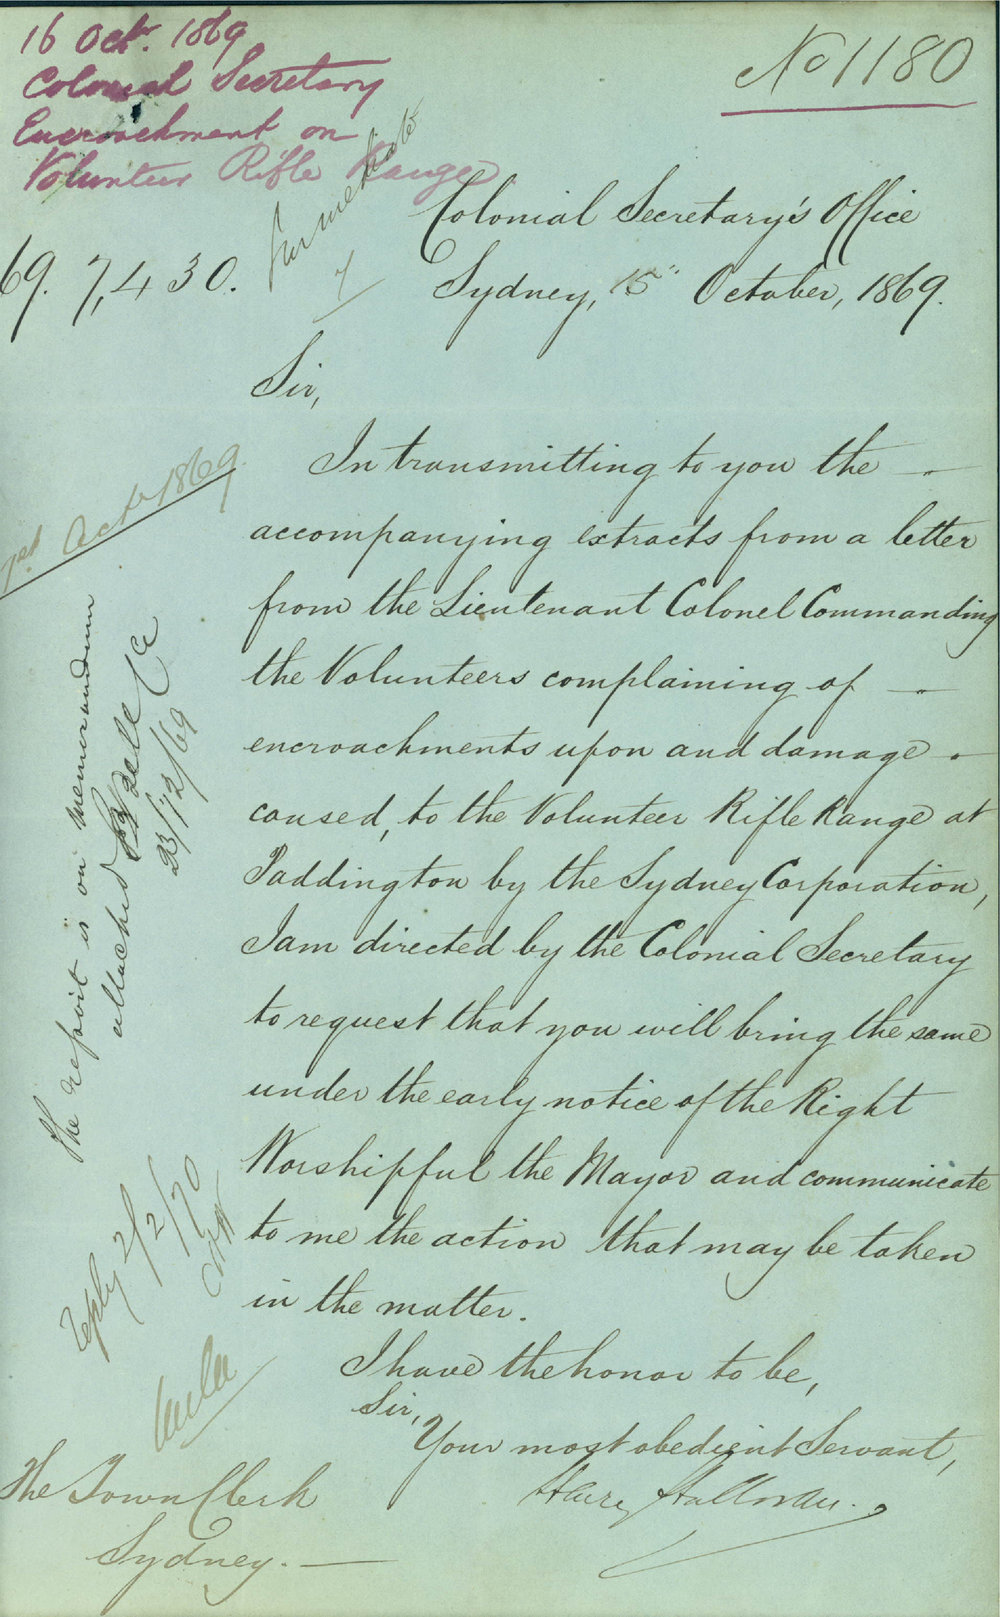 16 Octr. 1869
Colonial Secretary
Encroachment on
Volunteer Rifle Range
No 1180
Colonial Secretary's Office
69. 7,430.
Sydney, 15th October, 1869.
Sir,
In transmitting to you the
accompanying extracts from a letter
from the Lieutenant Colonel Commanding
the Volunteers complaining of
encroachments upon and damage
caused, to the Volunteer Rifle Range at
Paddington by the Sydney Corporation,
I am directed by the Colonial Secretary
to request that you will bring the same
under the early notice of the Right
Worshipful the Mayor and communicate
to me the action that may be taken
in the matter.
I have the honor to be,
Sir,
Your most obedient Servant,
Henry Halloran.
The Town Clerk
Sydney.
Octr 1869
The report is on memorandum
attached Bell CE
23/12/69
reply 2/2/70